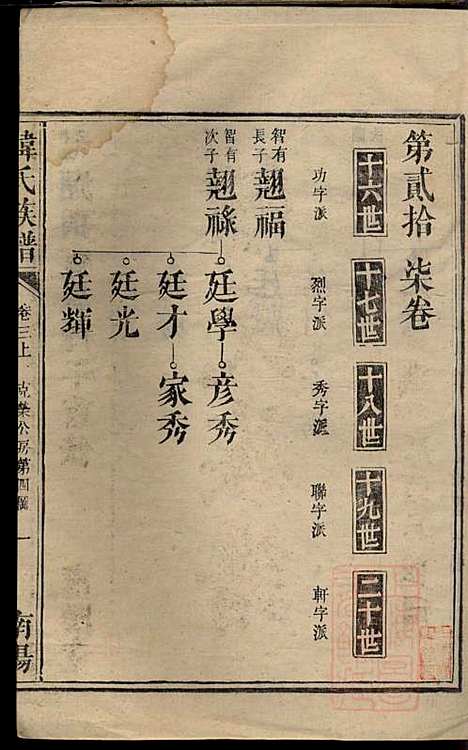 第貳拾柒卷
十六世 十七世 十八世 十九世 二十世
功字派 烈字派 秀字派 聯字派 軒字派
智有長子 翹福
智有次子 翹祿 廷學 彦秀
廷才 家秀
廷光
廷輝
韓氏族譜 卷三上 克榮公房第四 一 南陽